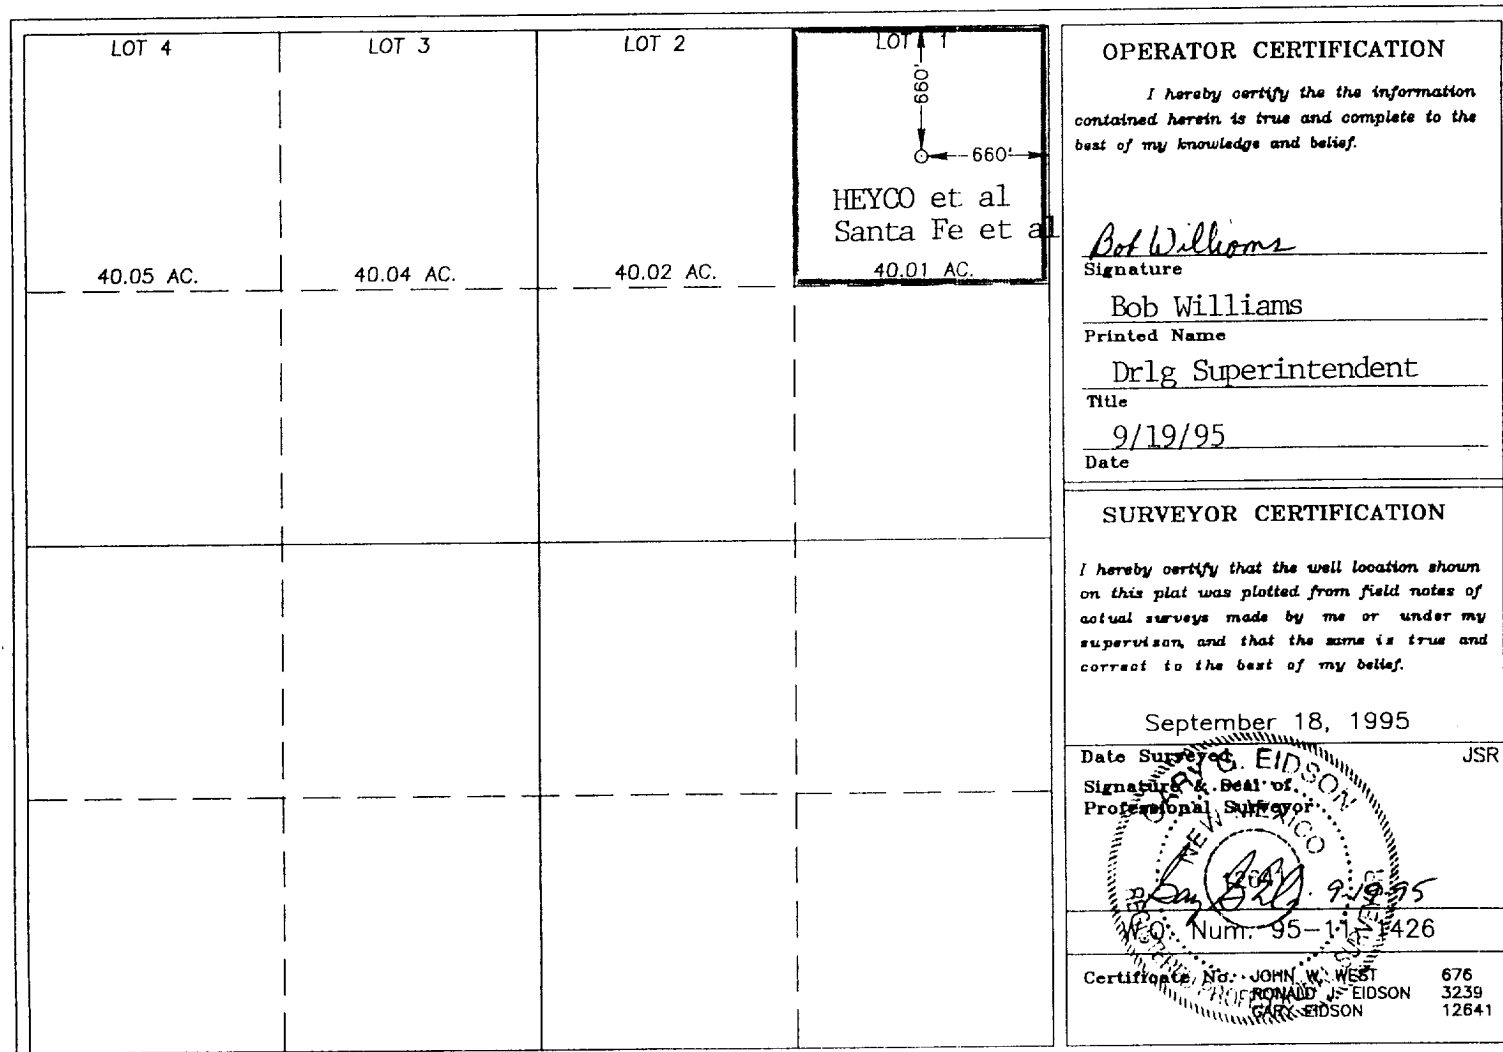 LOT 4
LOT 3
LOT 2
LOT 1
660'
660'
HEYCO et al
Santa Fe et al
40.05 AC.
40.04 AC.
40.02 AC.
40.01 AC.
OPERATOR CERTIFICATION
I hereby certify the the information
contained herein is true and complete to the
best of my knowledge and belief.
Bob Williams
Signature
Bob Williams
Printed Name
Drlg Superintendent
Title
9/19/95
Date
SURVEYOR CERTIFICATION
I hereby certify that the well location shown
on this plat was plotted from field notes of
actual surveys made by me or under my
supervison, and that the same is true and
correct to the best of my belief.
September 18, 1995
Date Surveyed
JSR
Signature & Seal of
Professional Surveyor
GARY G. EIDSON
NEW MEXICO
12641
9-19-95
W.O. Num. 95-11-1426
Certificate No. JOHN W. WEST 676
RONALD J. EIDSON 3239
GARY EIDSON 12641